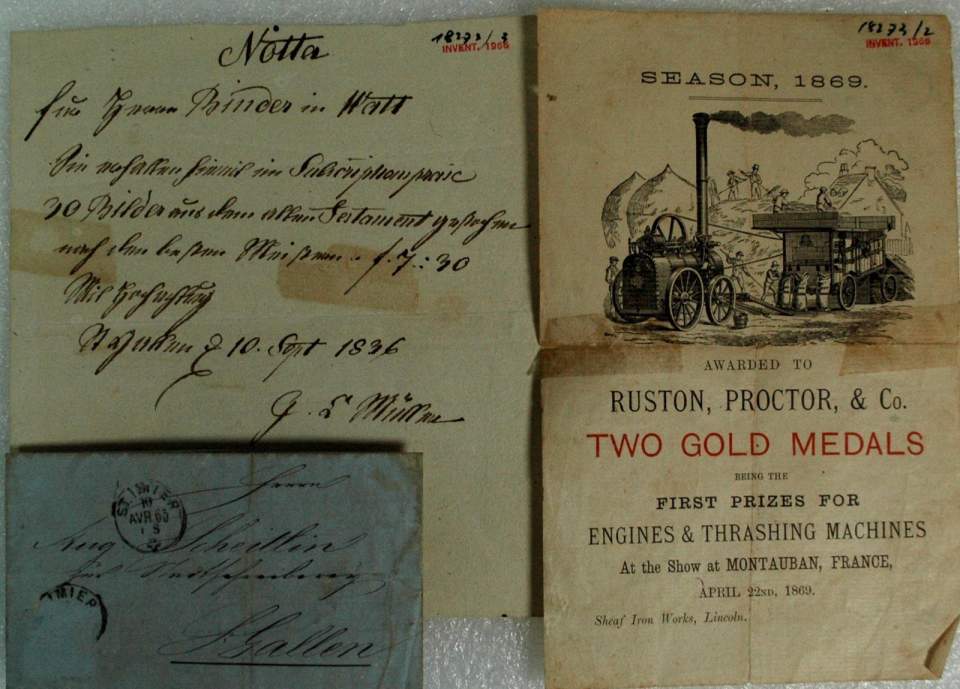 Notta
18273/3
INVENT. 1966
für Herrn Binder in Watt
Sie erhalten hiemit im Subscriptionspreis
30 Bilder aus dem alten Testament gestochen
nach den besten Meistern . f. 7 : 30
Mit Hochachtung
St Gallen 10. Sept 1836
Müller
18273/2
INVENT. 1966
SEASON, 1869.
AWARDED TO
RUSTON, PROCTOR, & Co.
TWO GOLD MEDALS
BEING THE
FIRST PRIZES FOR
ENGINES & THRASHING MACHINES
At the Show at MONTAUBAN, FRANCE,
APRIL 22ND, 1869.
Sheaf Iron Works, Lincoln.
Herrn
ST. IMIER
10
AVR 65
Aug Scheitlin
IMIER
St Gallen